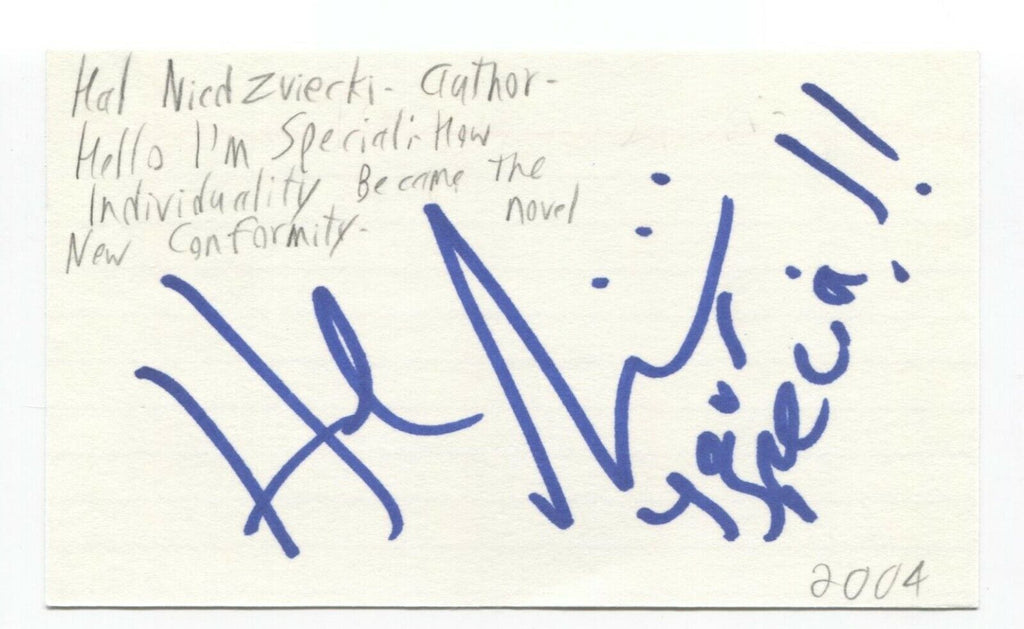 Hal Niedzviecki - author -
Hello I'm Special: How
Individuality Became The
New Conformity - novel
Hal Ni...
special!!
2004